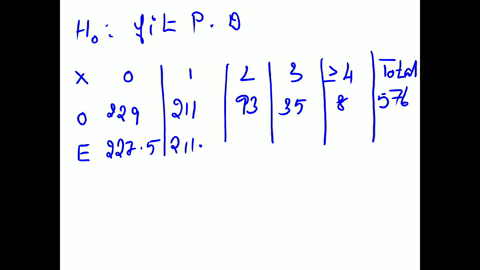 H₀: fit P.D
X 0 1 2 3 ≥4 Total
O 229 211 93 35 8 576
E 227.5 211.